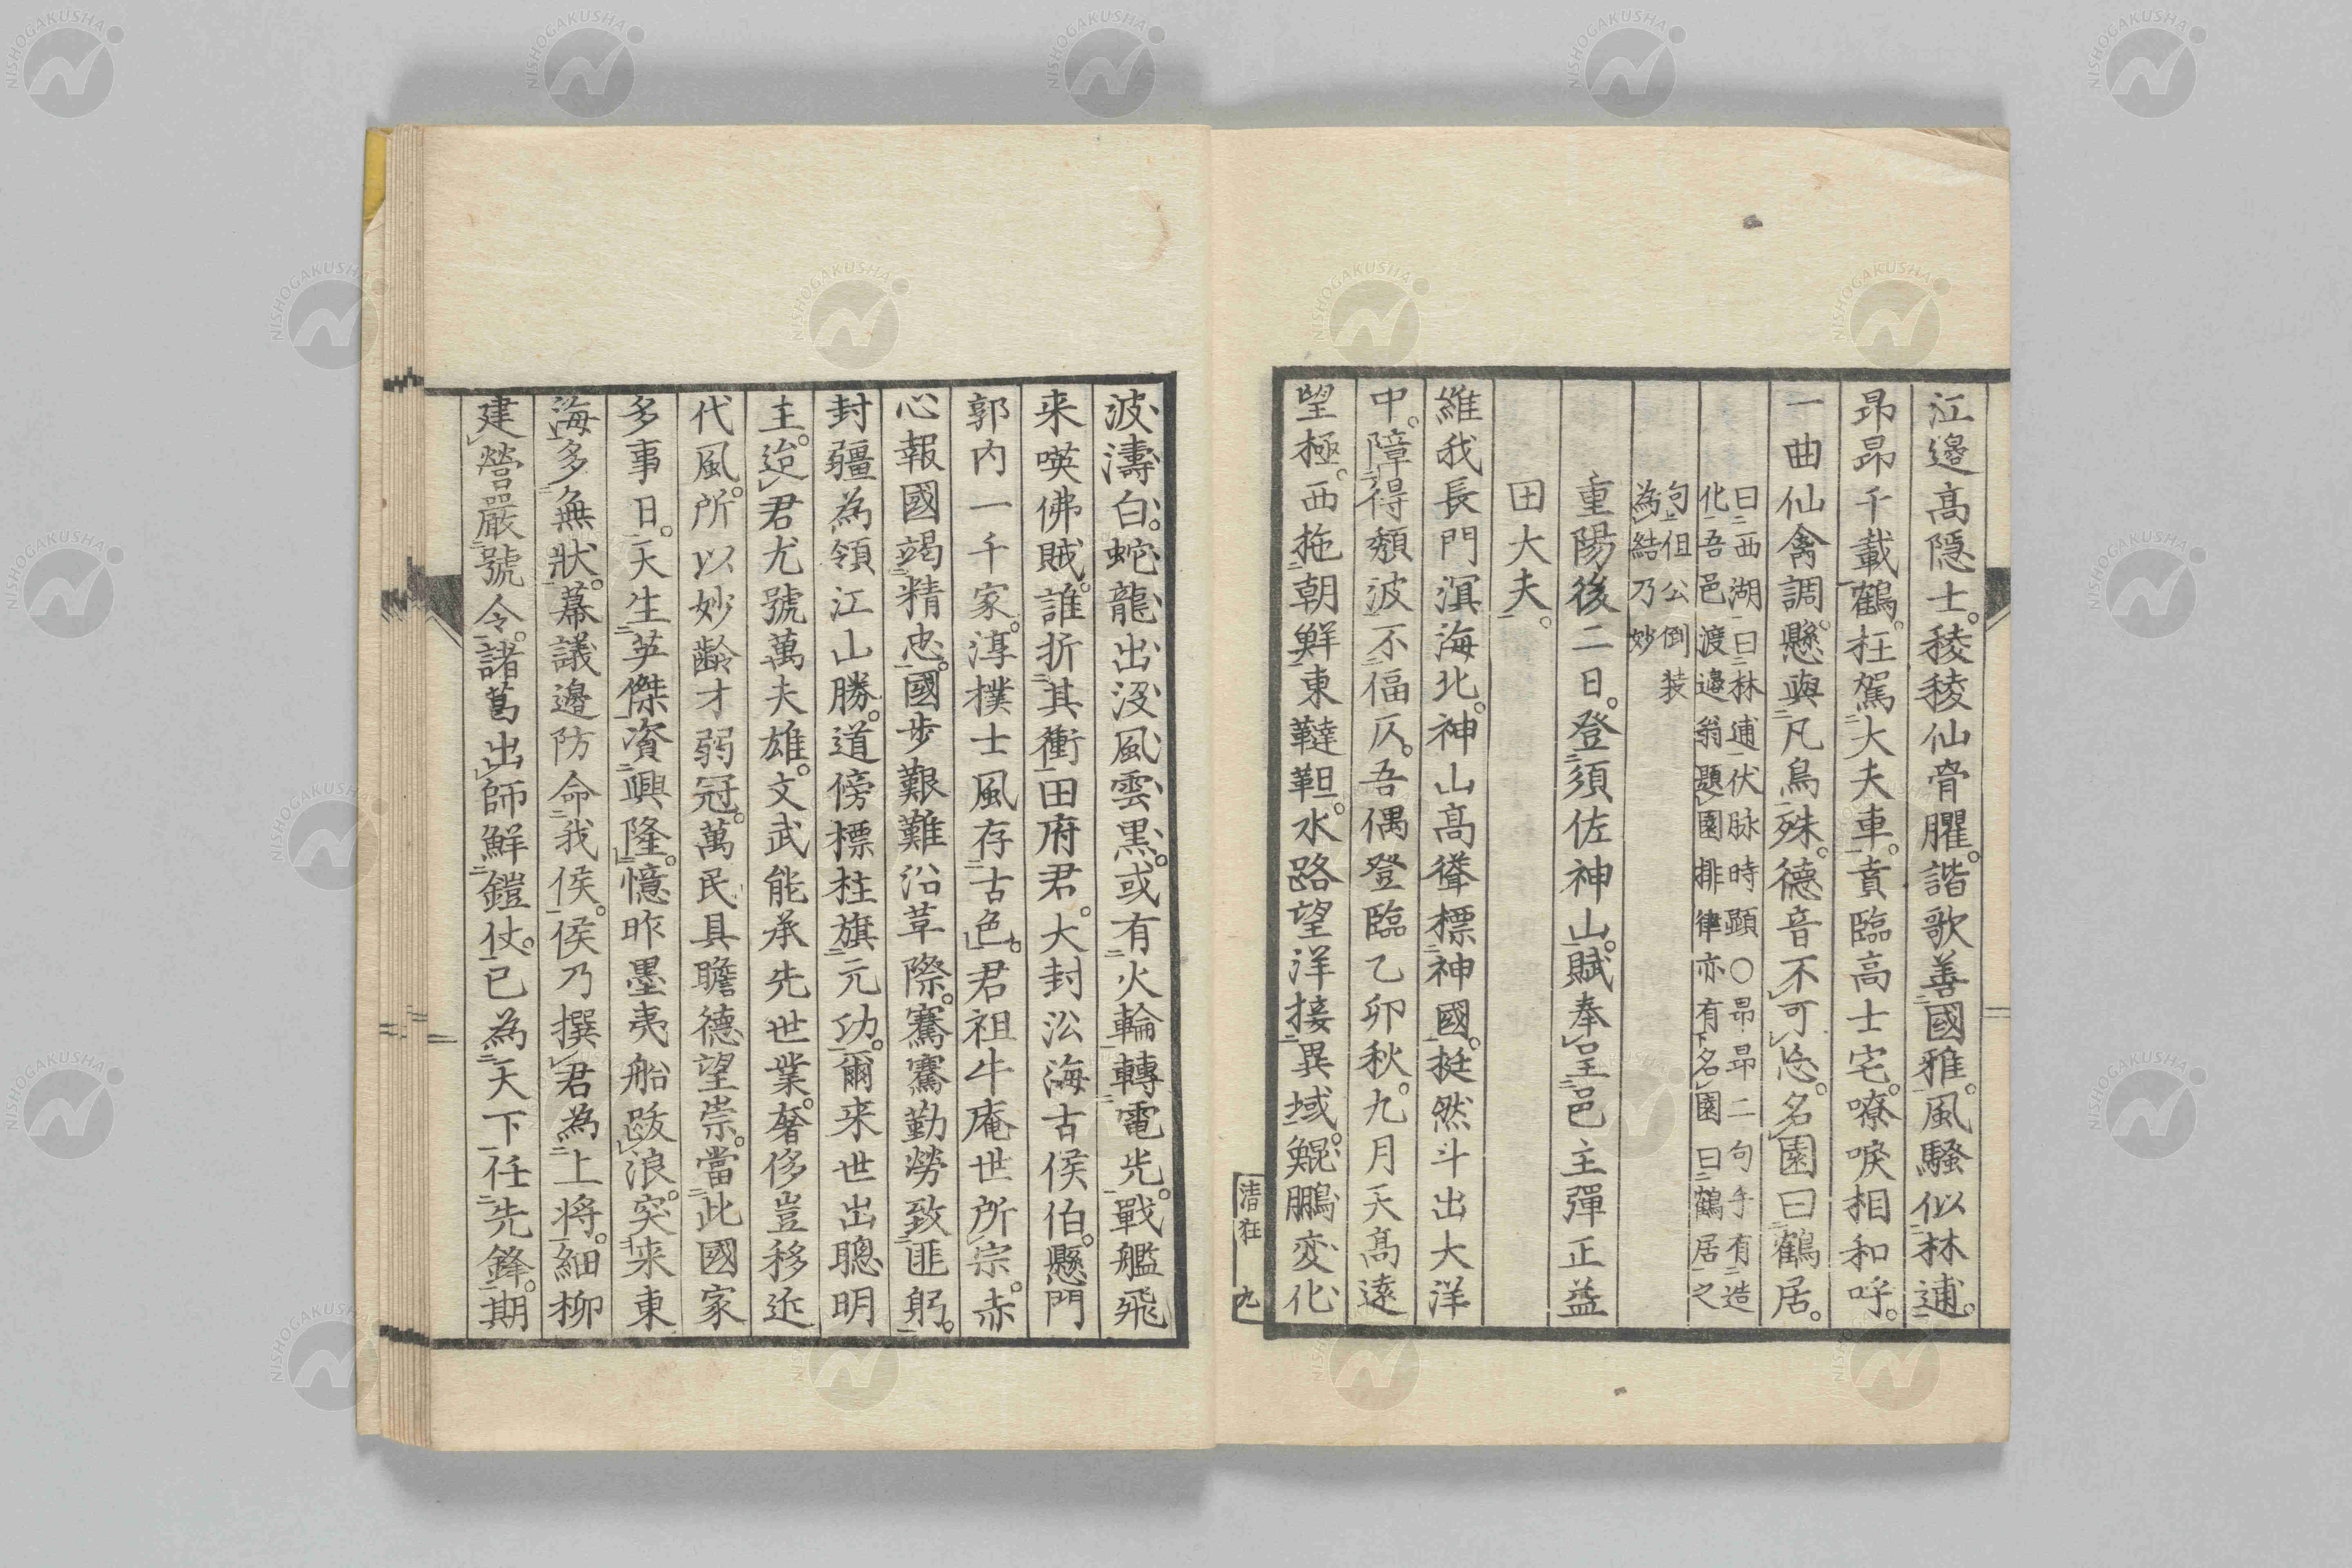 江邉高隠士。稜稜仙骨臞。諧歌善國雅。風騷似林逋。
昂昂千載鶴。枉駕大夫車。賁臨高士宅。嘹唳相和呼。
一曲仙禽調。懸與凡鳥殊。德音不可忘。名園曰鶴居。
曰西湖曰林逋伏脉時顕〇昂昂二句手有造
化吾邑渡邉翁題園排律亦有名園曰鶴居之
句但公倒装
為結乃妙
重陽後二日。登須佐神山。賦奉呈邑主彈正益
田大夫。
維我長門溟海北。神山高聳標神國。挺然斗出大洋
中。障得頽波不偪仄。吾偶登臨乙卯秋。九月天高遠
望極。西拖朝鮮東韃靼。水路望洋接異域。鯤鵬変化
清狂 九
波濤白。蛇龍出没風雲黒。或有火輪轉電光。戰艦飛
来暎佛賊。誰折其衝田府君。大封㳂海古侯伯。懸門
郭内一千家。淳撲士風存古色。君祖牛庵世所宗。赤
心報國竭精忠。國步艱難沿草際。騫騫勤勞致匪躬。
封疆為領江山勝。道傍標柱旗元功。爾来世出聰明
主。迨君尤號萬夫雄。文武能承先世業。奢侈豈移近
代風。所以妙齡才弱冠。萬民具瞻德望崇。當此國家
多事日。天生英傑資興隆。憶昨墨夷船跋浪。突来東
海多無狀。幕議邉防命我侯。侯乃撰君為上将。細柳
建營嚴號令。諸葛出師鮮鎧仗。已為天下任先鋒。期